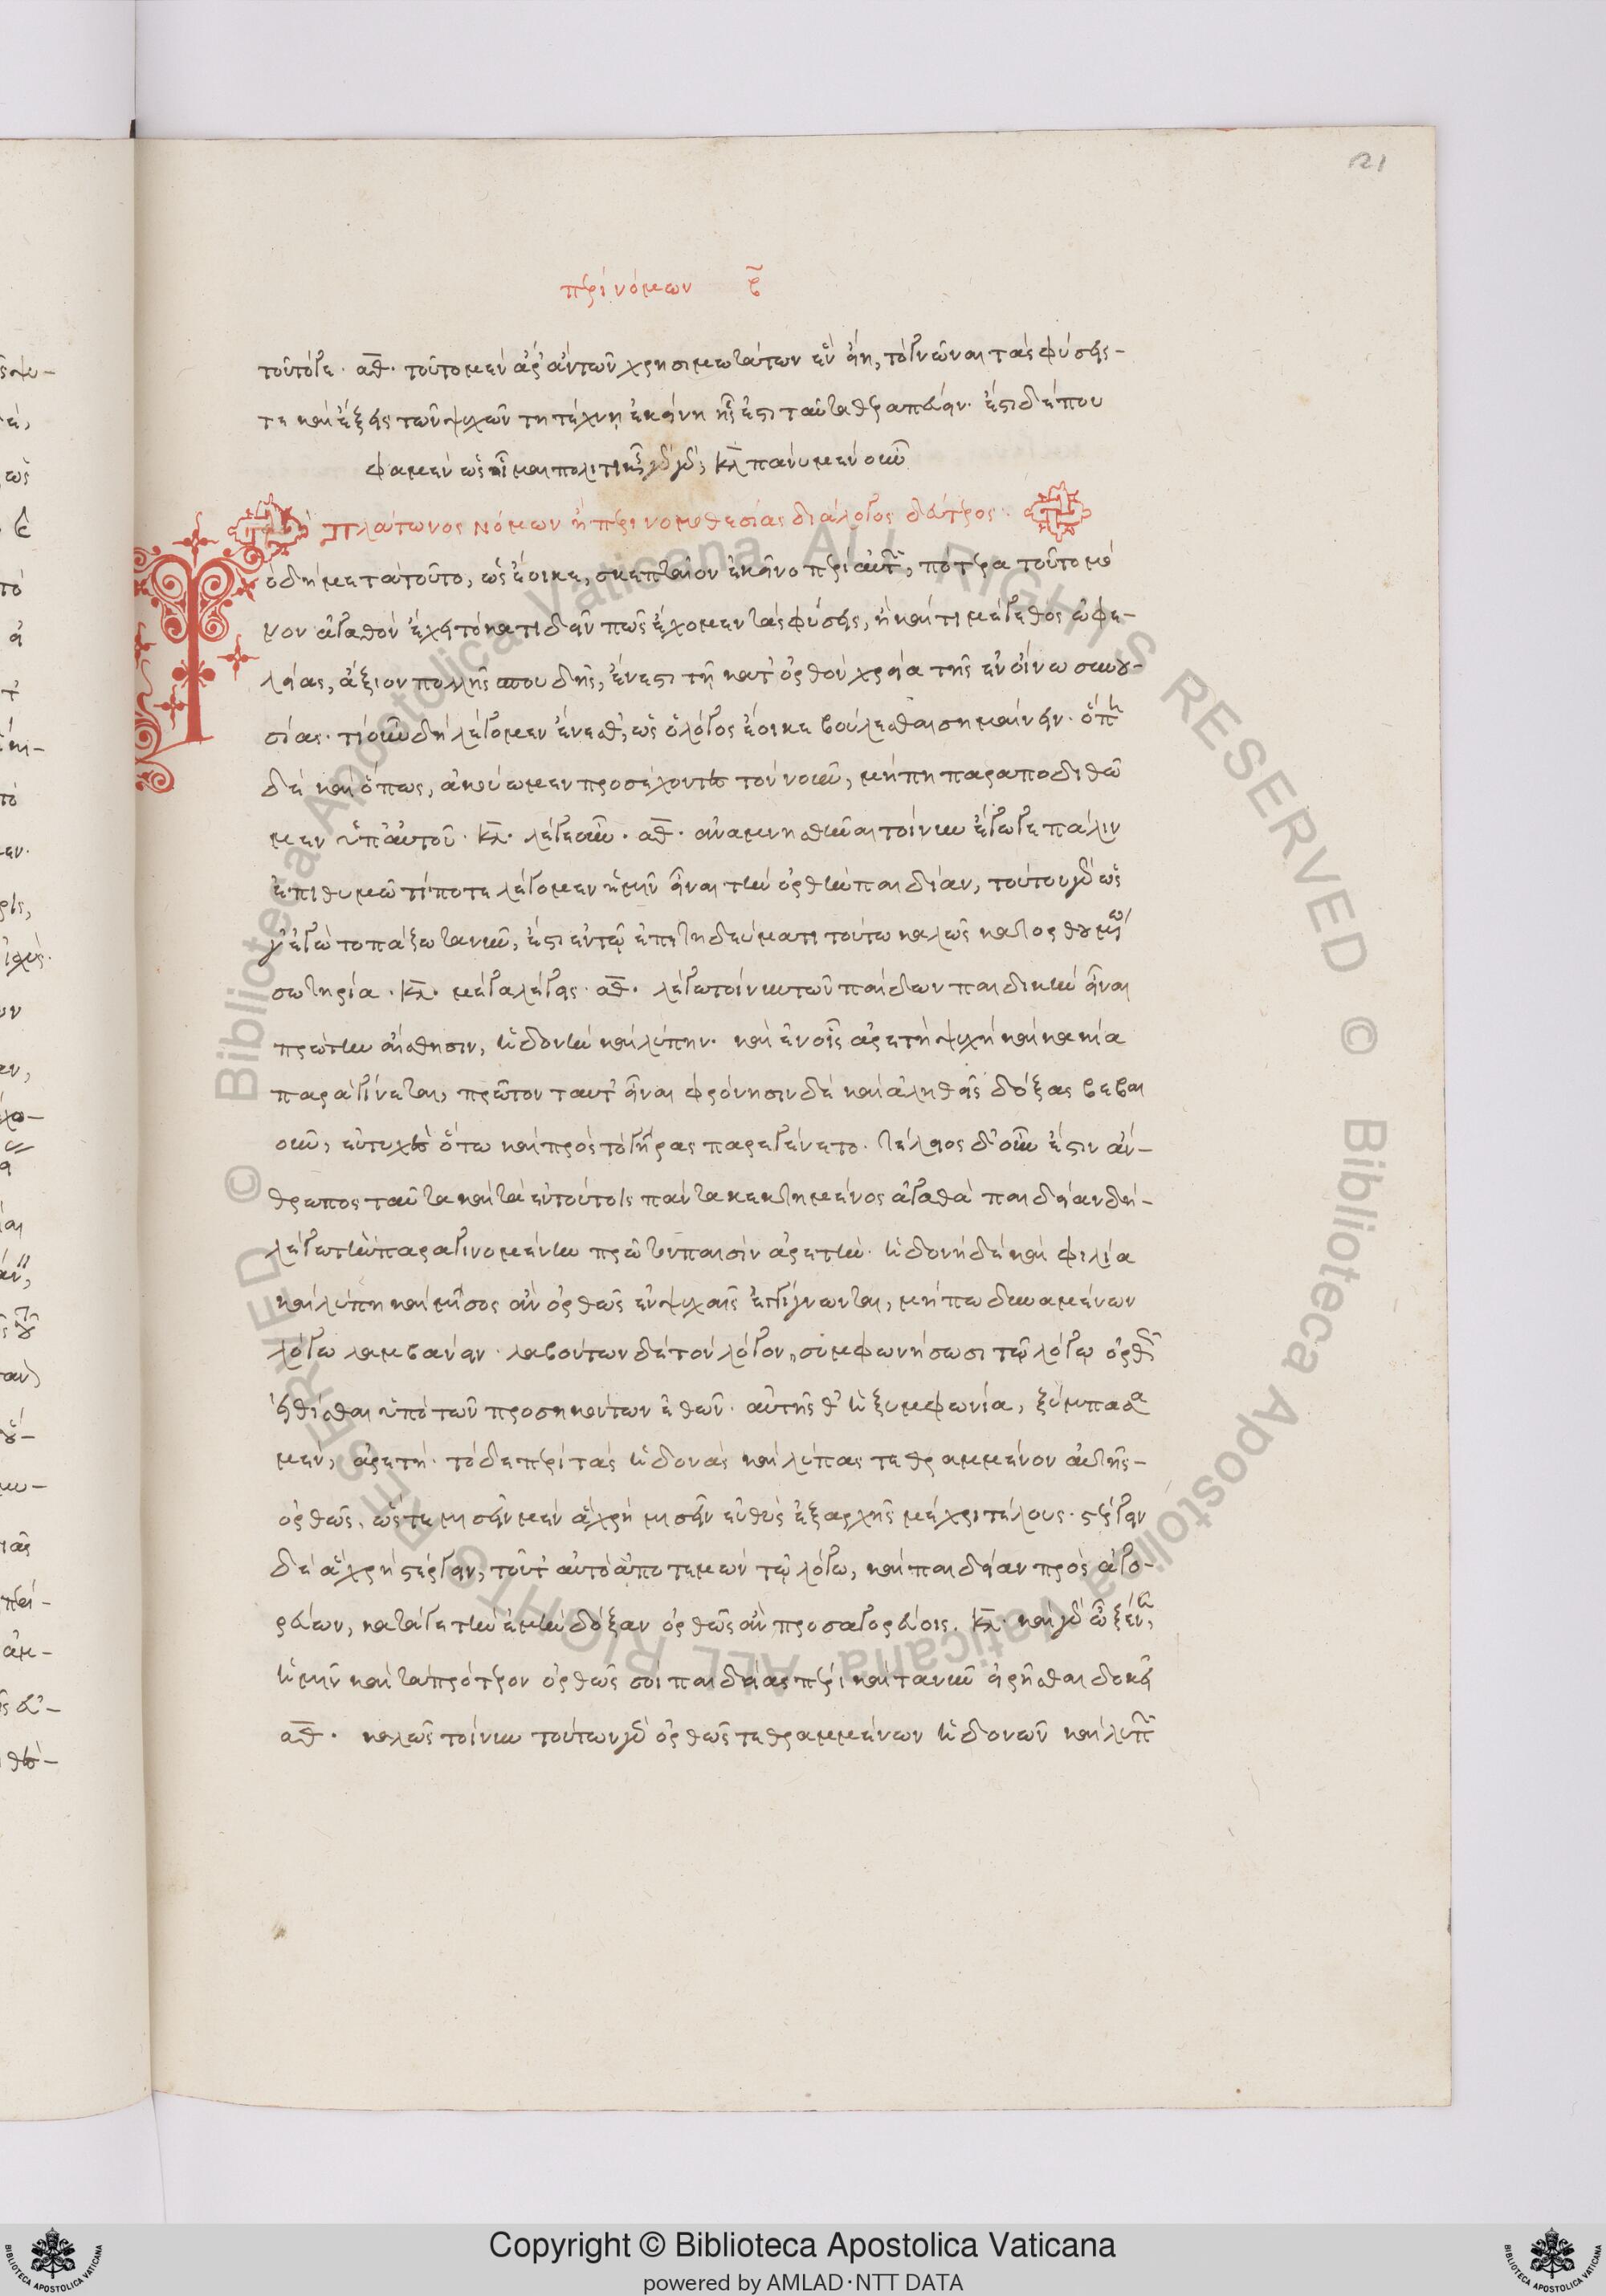 21
περὶ νόμων β̃
τοῦτό γε. αθ. τοῦτο μὲν ἄρ' ἂν τῶν χρησιμωτάτων ἓν εἴη, τὸ γνῶναι τὰς φύσεις
τε καὶ ἕξεις τῶν ψυχῶν τῇ τέχνῃ ἐκείνῃ ἧς ἐστι ταῦτα θεραπεύειν. ἔστι δέ που
φαμὲν ὡς οἶμαι πολιτικῆς. ἢ γάρ; κλ πάνυ μὲν οὖν
Πλάτωνος Νόμων ἢ περὶ νομοθεσίας διάλογος δεύτερος
Τὸ δὴ μετὰ τοῦτο, ὡς ἔοικε, σκεπτέον ἐκεῖνο περὶ αὐτῶν, πότερα τοῦτο μό
νον ἀγαθὸν ἔχει τὸ κατιδεῖν πῶς ἔχομεν τὰς φύσεις, ἢ καί τι μέγεθος ὠφε-
λείας, ἄξιον πολλῆς σπουδῆς, ἔνεστι τῇ κατ' ὀρθὸν χρείᾳ τῆς ἐν οἴνῳ συνου-
σίας. τί οὖν δὴ λέγομεν ἔνεσθ', ὡς ὁ λόγος ἔοικε βούλεσθαι σημαίνειν. ὅπῃ
δὲ καὶ ὅπως, ἀκούωμεν προσέχοντες τὸν νοῦν, μή πῃ παραποδισθῶ
μεν ὑπ' αὐτοῦ. κλ. λέγε οὖν. αθ. ἀναμνησθῆναι τοίνυν ἔγωγε πάλιν
ἐπιθυμῶ τί ποτε λέγομεν ἡμῖν εἶναι τὴν ὀρθὴν παιδείαν, τούτου γὰρ ὥς
γ' ἐγὼ τοπάξω τανῦν, ἔστι ἐν τῷ ἐπιτηδεύματι τούτῳ καλῶς κατορθουμένῳ
σωτηρία. κλ. μέγα λέγεις. αθ. λέγω τοίνυν τῶν παίδων παιδικὴν εἶναι
πρώτην αἴσθησιν, ἡδονὴν καὶ λύπην. καὶ ἐν οἷς ἀρετὴ ψυχῇ καὶ κακία
παραγίνεται, πρῶτον ταῦτ' εἶναι φρόνησιν δὲ καὶ ἀληθεῖς δόξας βεβαί
ους, εὐτυχὲς ὅτῳ καὶ πρὸς τὸ γῆρας παρεγένετο. τέλεος δ' οὖν ἔστιν ἄν-
θρωπος ταῦτα καὶ τὰ ἐν τούτοις πάντα κεκτημένος ἀγαθὰ παιδείαν δὴ
λέγω τὴν παραγινομένην πρῶτον παισὶν ἀρετήν. ἡδονὴ δὲ καὶ φιλία
καὶ λύπη καὶ μῖσος ἂν ὀρθῶς ἐν ψυχαῖς ἐγγίγνωνται, μήπω δυναμένων
λόγῳ λαμβάνειν. λαβόντων δὲ τὸν λόγον, συμφωνήσωσι τῷ λόγῳ ὀρθῶς
εἰθίσθαι ὑπὸ τῶν προσηκόντων ἐθῶν. αὐτῆς θ' ἡ ξυμφωνία, ξύμπασα
μέν, ἀρετή. τὸ δὲ περὶ τὰς ἡδονὰς καὶ λύπας τεθραμμένον αὐτῆς
ὀρθῶς, ὥστε μισεῖν μὲν ἃ χρὴ μισεῖν εὐθὺς ἐξ ἀρχῆς μέχρι τέλους. στέργειν
δὲ ἃ χρὴ στέργειν, τοῦτ' αὐτὸ ἀποτεμὼν τῷ λόγῳ, καὶ παιδείαν προσαγο-
ρεύων, κατά γε τὴν ἐμὴν δόξαν ὀρθῶς ἂν προσαγορεύοις. κλ. καὶ γὰρ ὦ ξένε,
ἡμῖν καὶ τὰ πρότερον ὀρθῶς σοι παιδείας πέρι καὶ τανῦν εἰρῆσθαι δοκεῖ
αθ. καλῶς τοίνυν τούτων γὰρ ὀρθῶς τεθραμμένων ἡδονῶν καὶ λυπῶν
Copyright © Biblioteca Apostolica Vaticana
powered by AMLAD·NTT DATA
© Biblioteca Apostolica Vaticana ALL RIGHTS RESERVED © Biblioteca Apostolica Vaticana ALL RIGHTS RESERVED